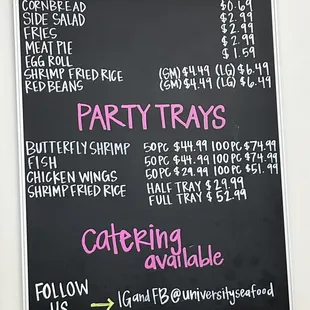 CORNBREAD $0.69
SIDE SALAD $2.99
FRIES $2.99
MEAT PIE $2.99
EGG ROLL $1.59
SHRIMP FRIED RICE (SM) $4.49 (LG) $6.49
RED BEANS (SM) $4.49 (LG) $6.49
PARTY TRAYS
BUTTERFLY SHRIMP 50 PC $44.99 100 PC $74.99
FISH 50 PC $44.99 100 PC $74.99
CHICKEN WINGS 50 PC $29.99 100 PC $51.99
SHRIMP FRIED RICE HALF TRAY $29.99
FULL TRAY $52.99
Catering
available
FOLLOW
US → IG and FB @universityseafood